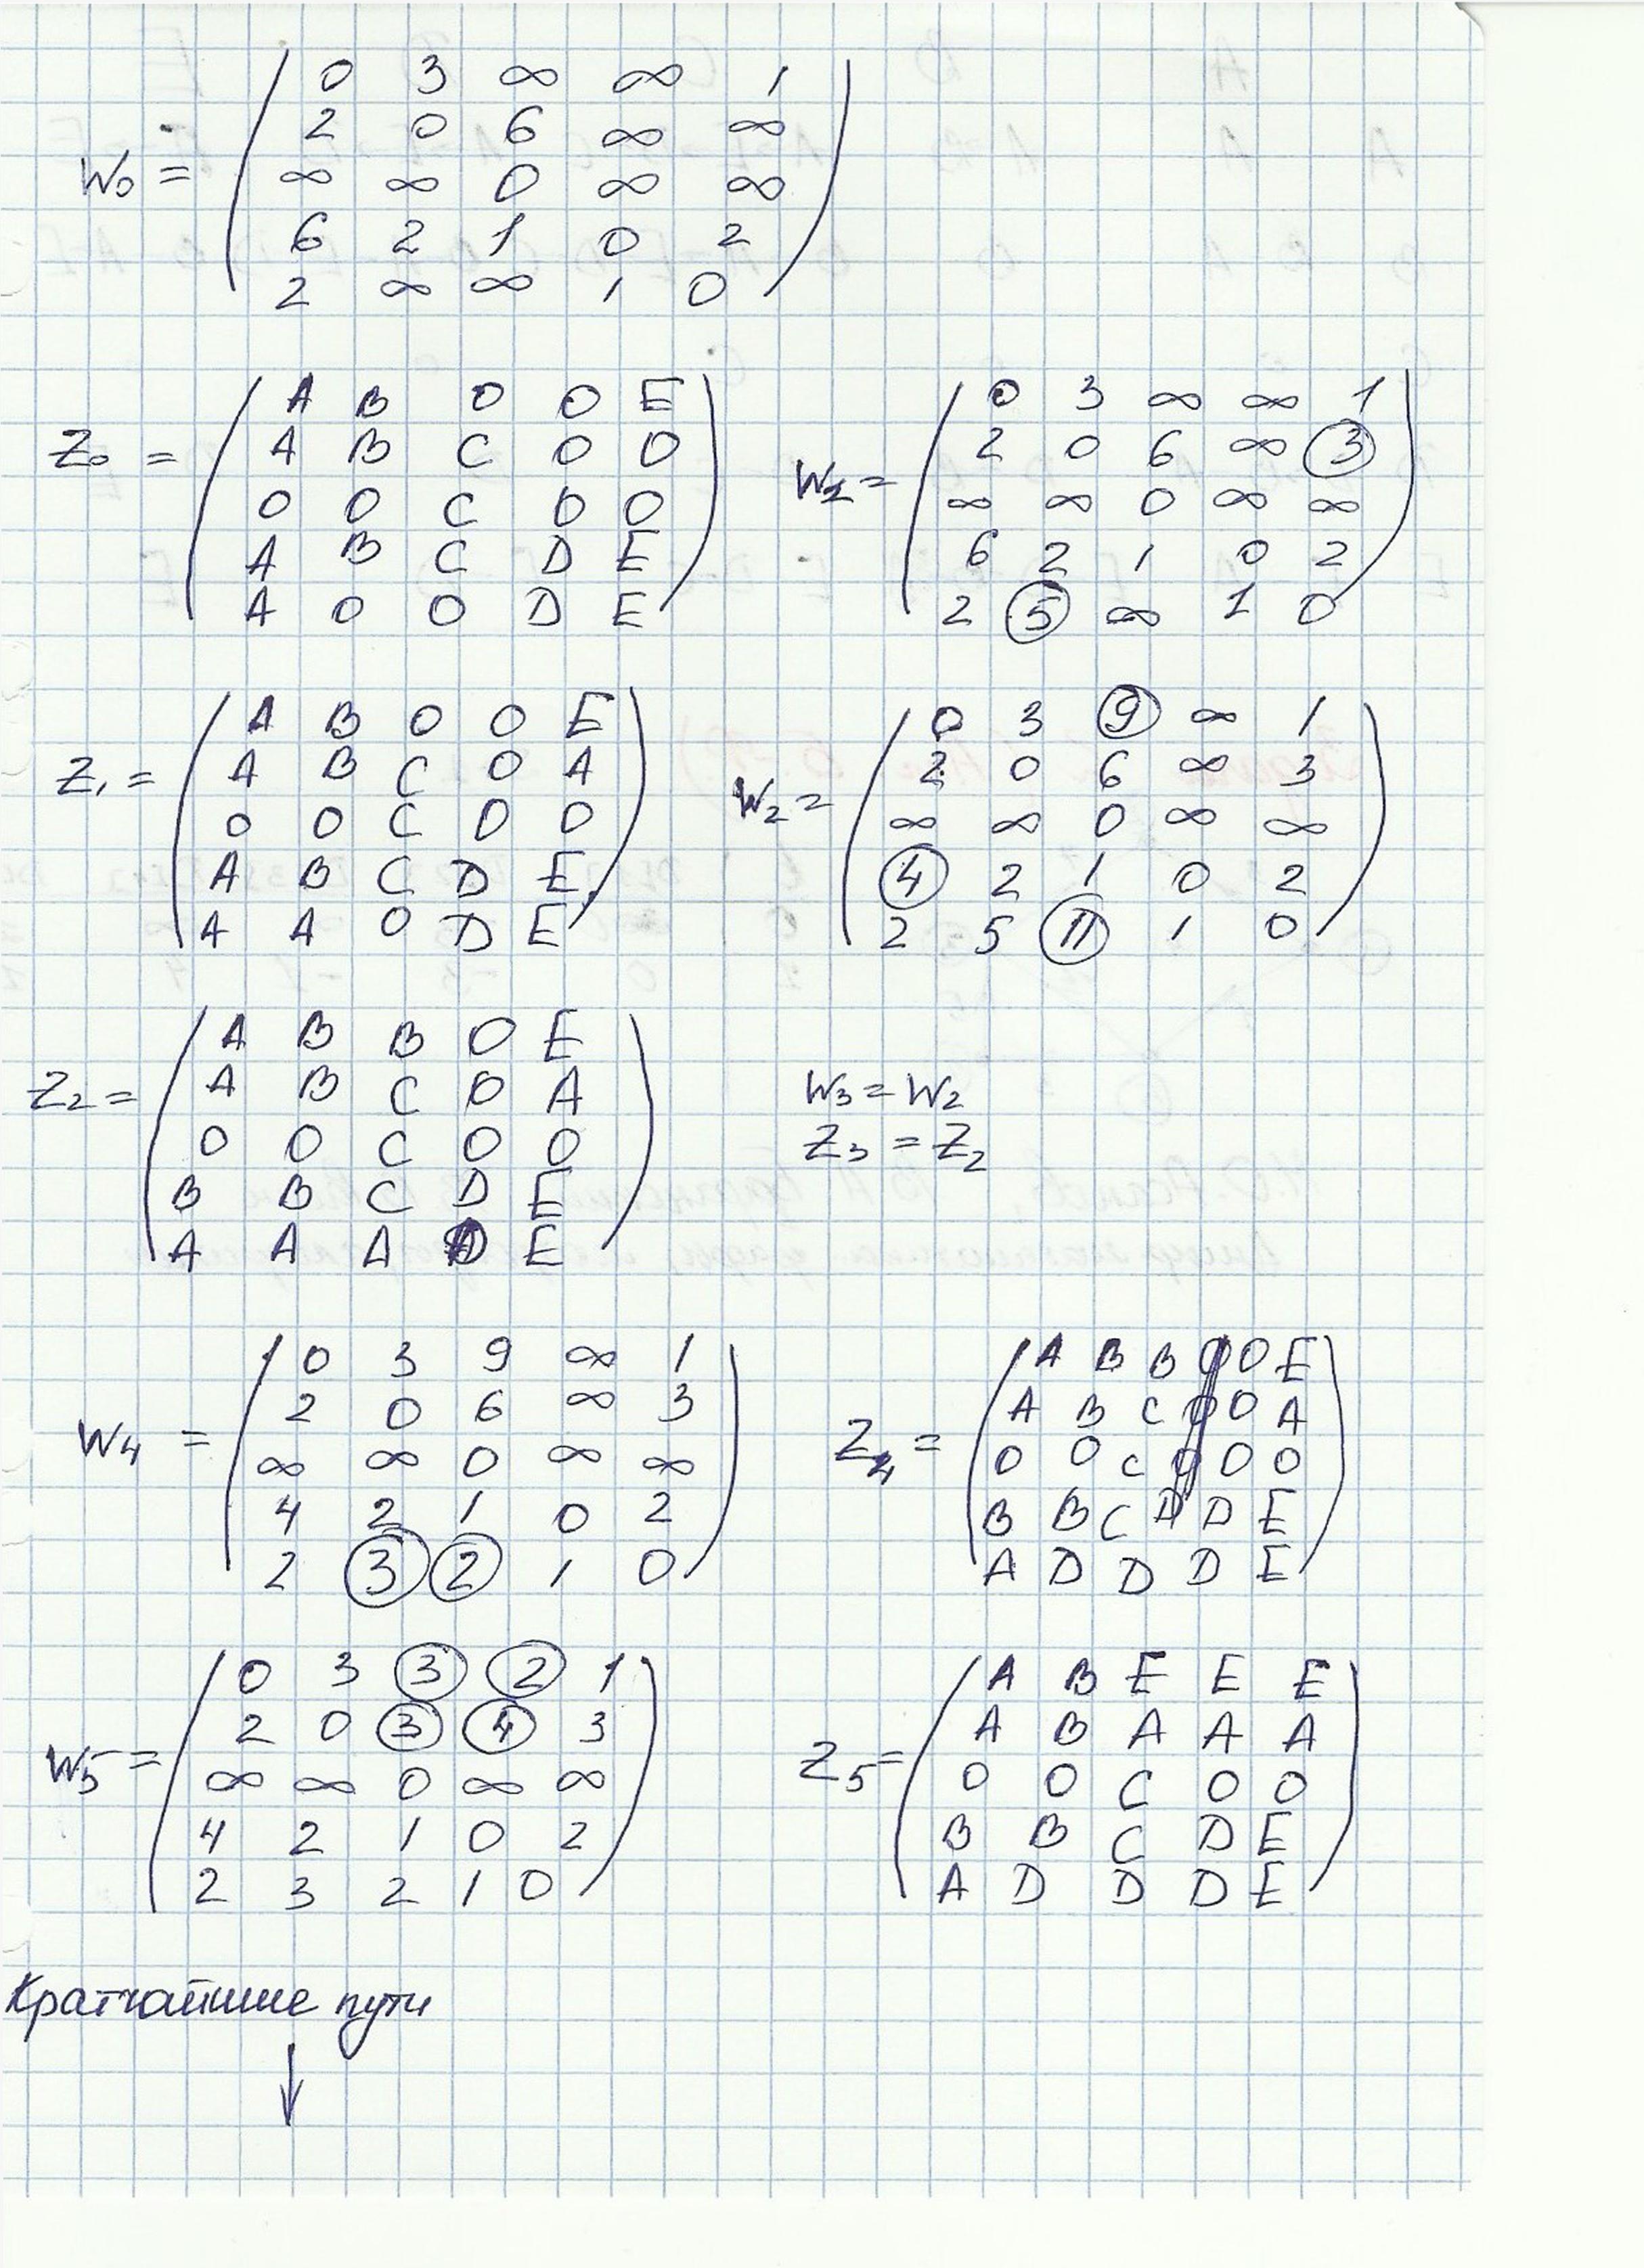 W0 = ( 0 3 ∞ ∞ 1
2 0 6 ∞ ∞
∞ ∞ 0 ∞ ∞
6 2 1 0 2
2 ∞ ∞ 1 0 )
Z0 = ( A B 0 0 E
A B C 0 0
0 0 C 0 0
A B C D E
A 0 0 D E )
W1 = ( 0 3 ∞ ∞ 1
2 0 6 ∞ 3
∞ ∞ 0 ∞ ∞
6 2 1 0 2
2 5 ∞ 1 0 )
Z1 = ( A B 0 0 E
A B C 0 A
0 0 C 0 0
A B C D E
A A 0 D E )
W2 = ( 0 3 9 ∞ 1
2 0 6 ∞ 3
∞ ∞ 0 ∞ ∞
4 2 1 0 2
2 5 11 1 0 )
Z2 = ( A B B 0 E
A B C 0 A
0 0 C 0 0
B B C D E
A A A D E )
W3 = W2
Z3 = Z2
W4 = ( 0 3 9 ∞ 1
2 0 6 ∞ 3
∞ ∞ 0 ∞ ∞
4 2 1 0 2
2 3 2 1 0 )
Z4 = ( A B B 0 E
A B C 0 A
0 0 C 0 0
B B C D E
A D D D E )
W5 = ( 0 3 3 2 1
2 0 3 4 3
∞ ∞ 0 ∞ ∞
4 2 1 0 2
2 3 2 1 0 )
Z5 = ( A B E E E
A B A A A
0 0 C 0 0
B B C D E
A D D D E )
Кратчайшие пути
↓